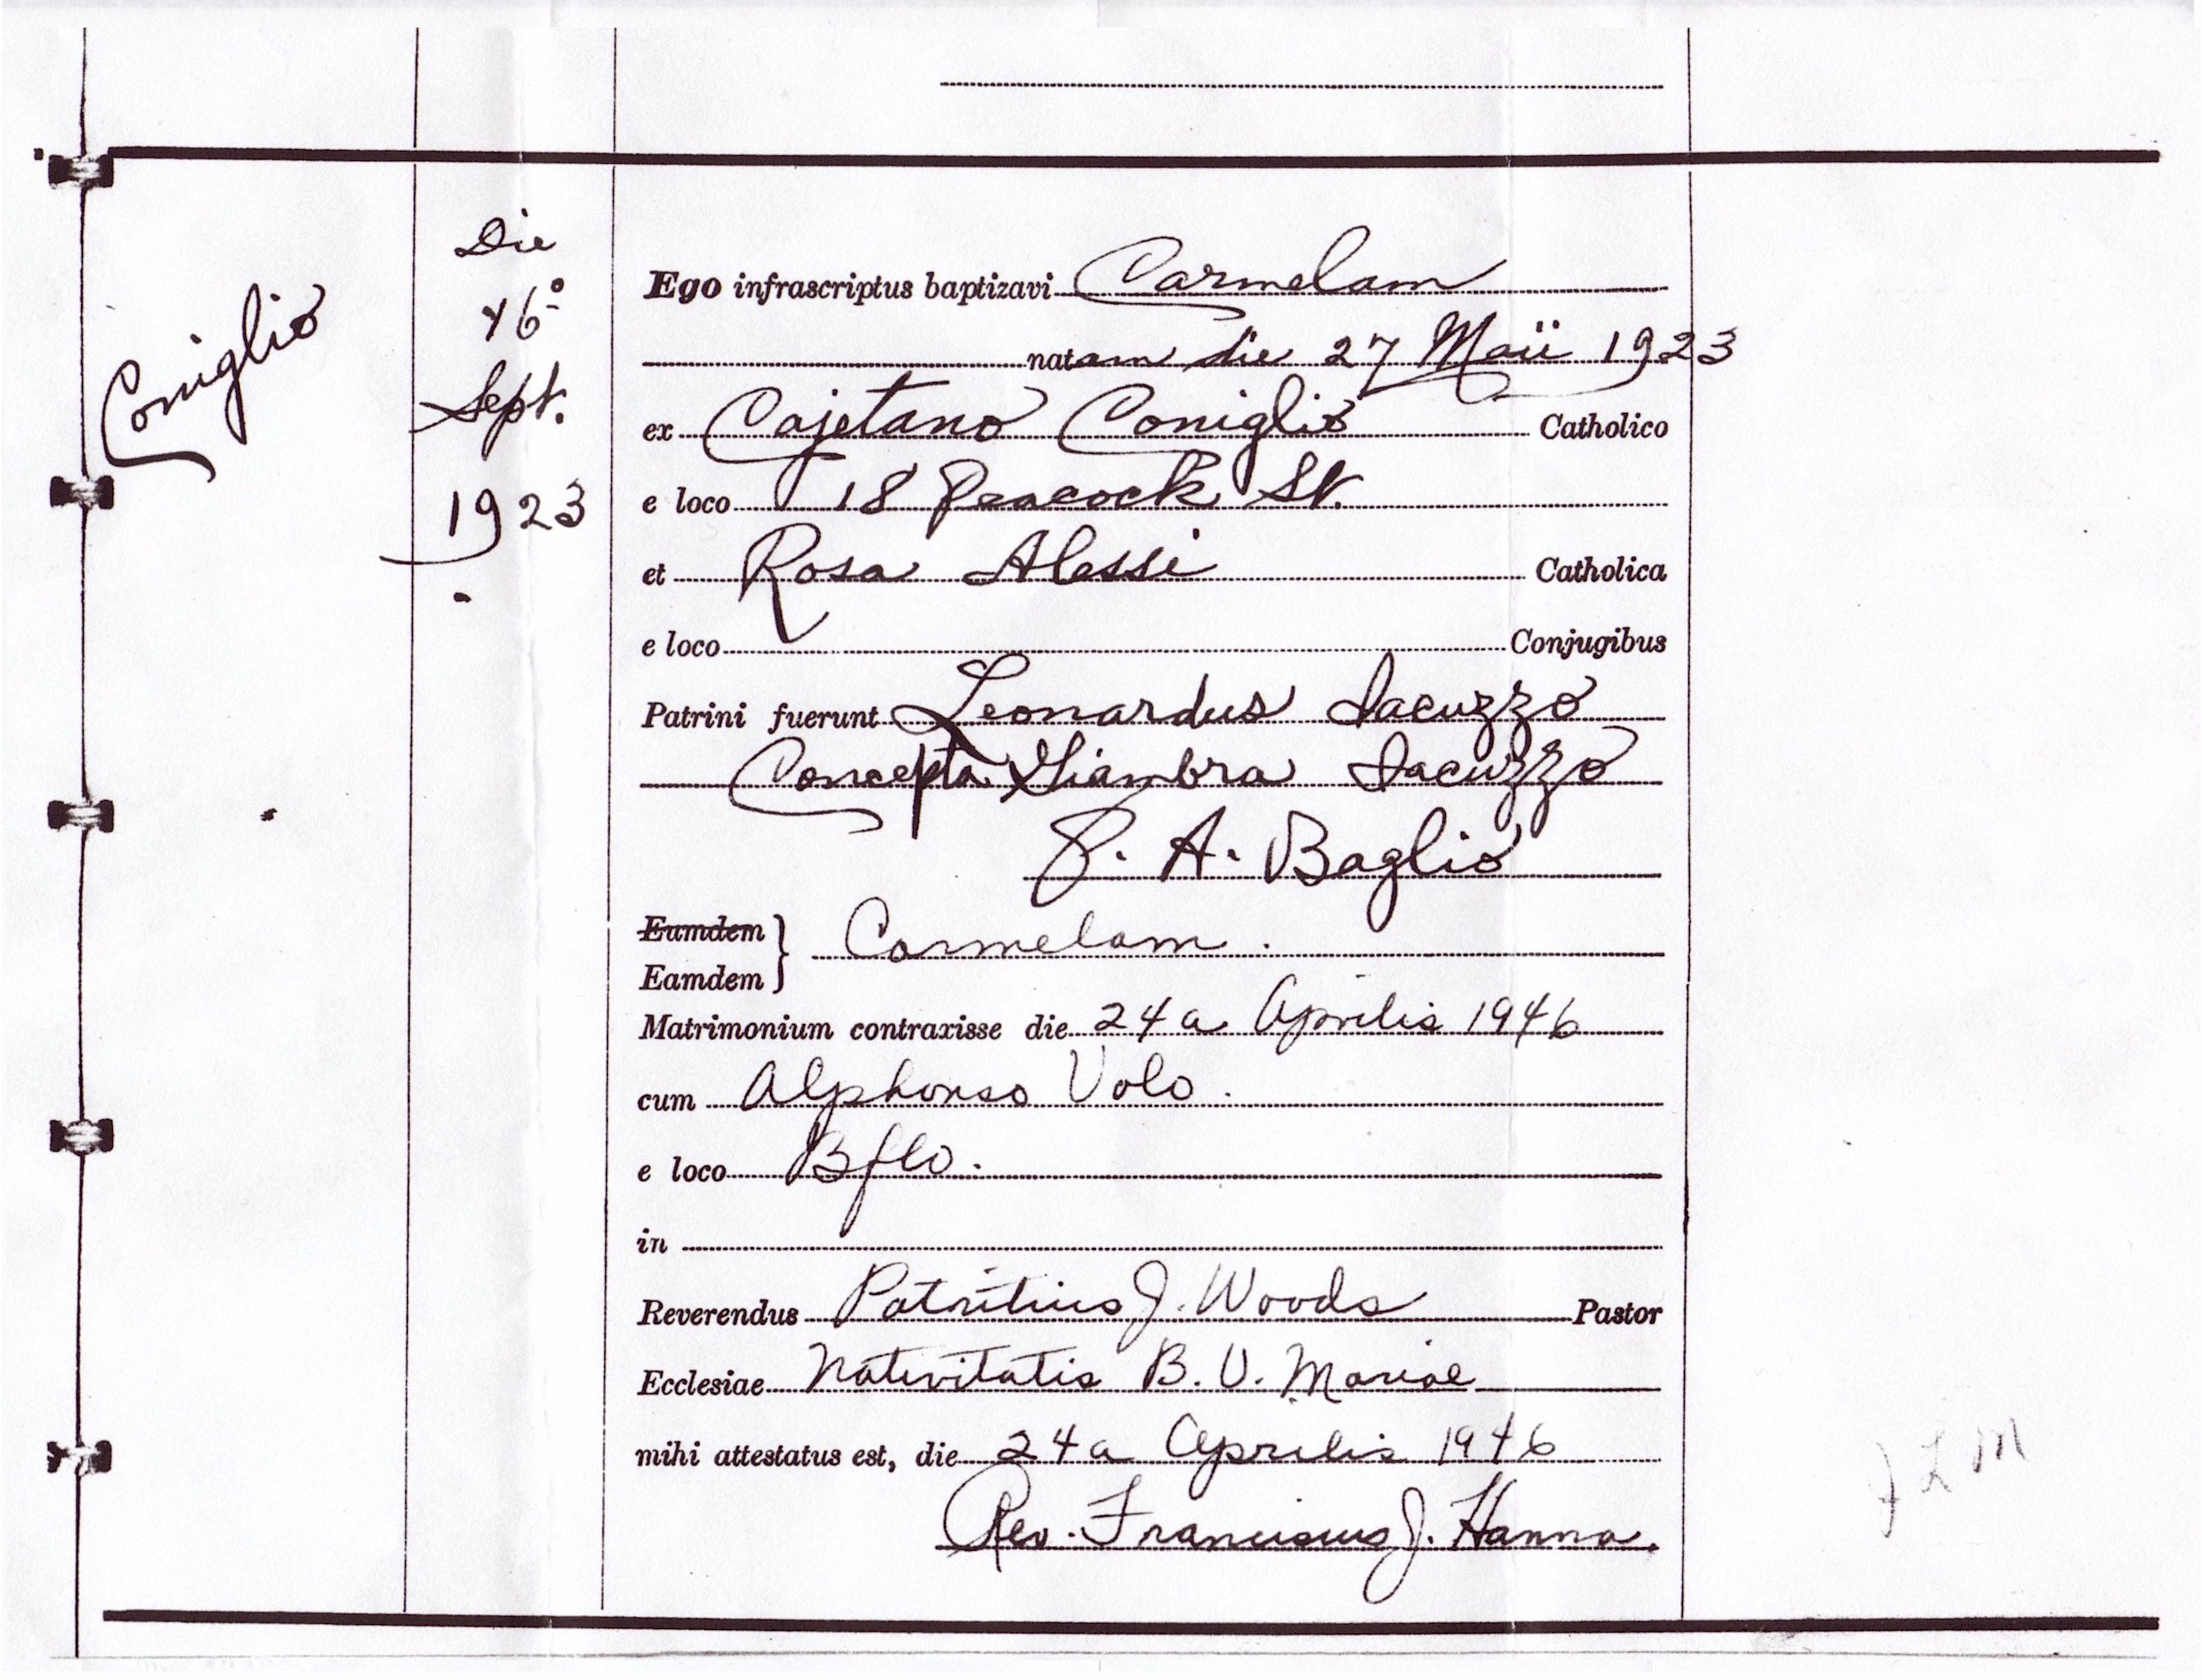 Coniglio
Die
16º
Sept.
1923
Ego infrascriptus baptizavi Carmelam
natam die 27 Maii 1923
ex Cajetano Coniglio Catholico
e loco 18 Peacock St.
et Rosa Alessi Catholica
e loco Conjugibus
Patrini fuerunt Leonardus Iacuzzo
Concepta Giambra Iacuzzo
P. A. Baglio
Eumdem
Carmelam.
Eamdem
Matrimonium contraxisse die 24a Aprilis 1946
cum Alphonso Volo.
e loco Bflo.
in
Reverendus Patritius J. Woods Pastor
Ecclesiae Nativitatis B. V. Mariae
mihi attestatus est, die 24a Aprilis 1946
Rev. Franciscus J. Hanna.